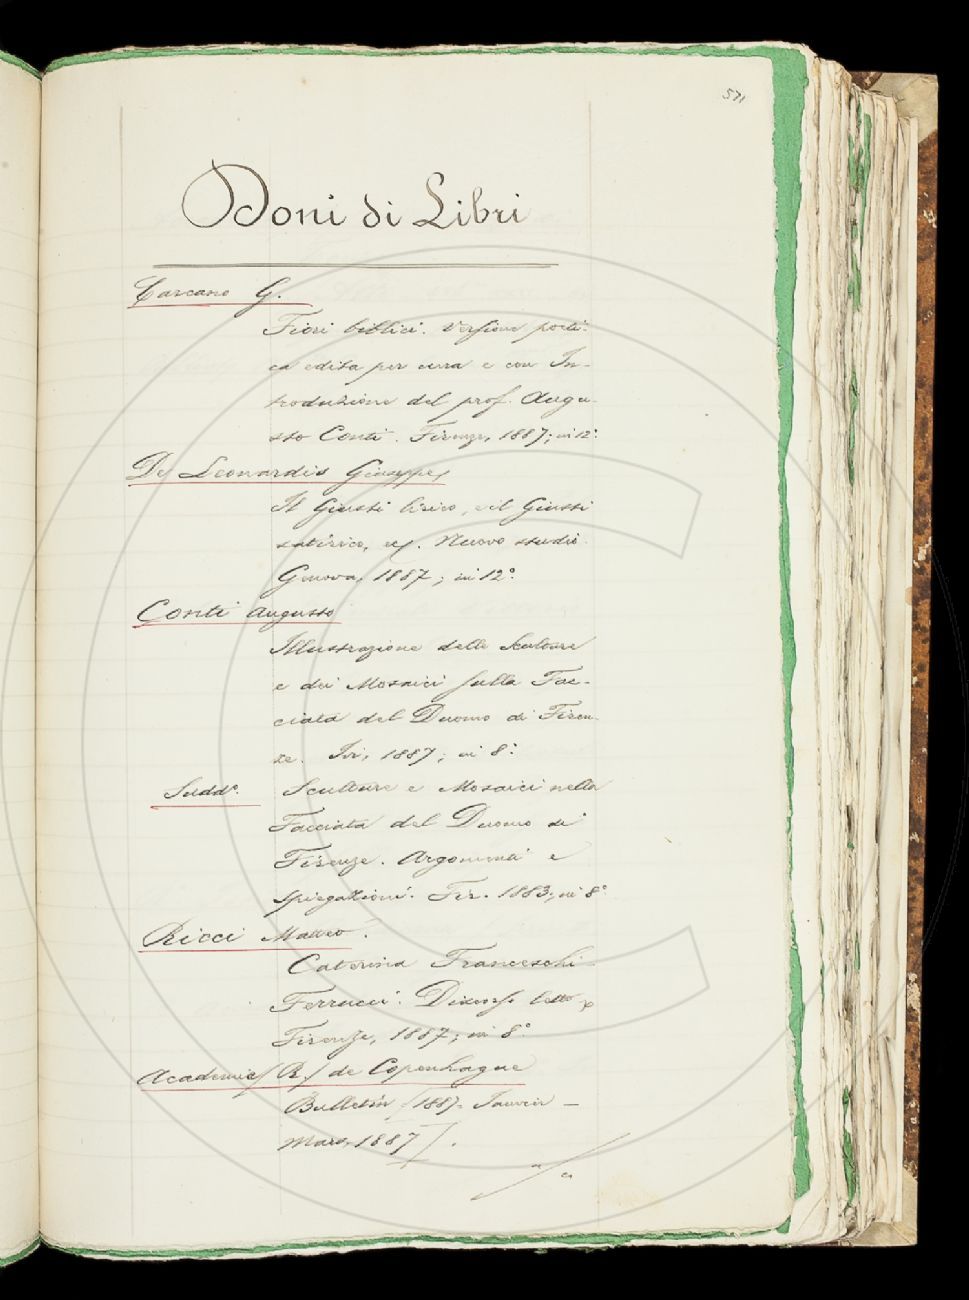 571
Doni di Libri
Carcano G.
Fiori biblici. Versione poeti-
ca edita per cura e con In-
troduzione del prof. Augu-
sto Conti. Firenze, 1887; in 12°.
De Leonardis Giuseppe
Il Giusti lirico, e il Giusti
satirico, ec. Nuovo studio.
Genova, 1887; in 12°.
Conti Augusto
Illustrazione delle Sculture
e dei Mosaici sulla Fac-
ciata del Duomo di Firen-
ze. Ivi, 1887; in 8°.
Sudd°. Sculture e Mosaici nella
Facciata del Duomo di
Firenze. Argomenti e
spiegazioni. Fir. 1883; in 8°
Ricci Matteo.
Caterina Franceschi-
Ferrucci. Discorso letto
Firenze, 1887; in 8°
Academie (R.) de Copenhague
Bulletin (1887. Janvier —
Mars, 1887).